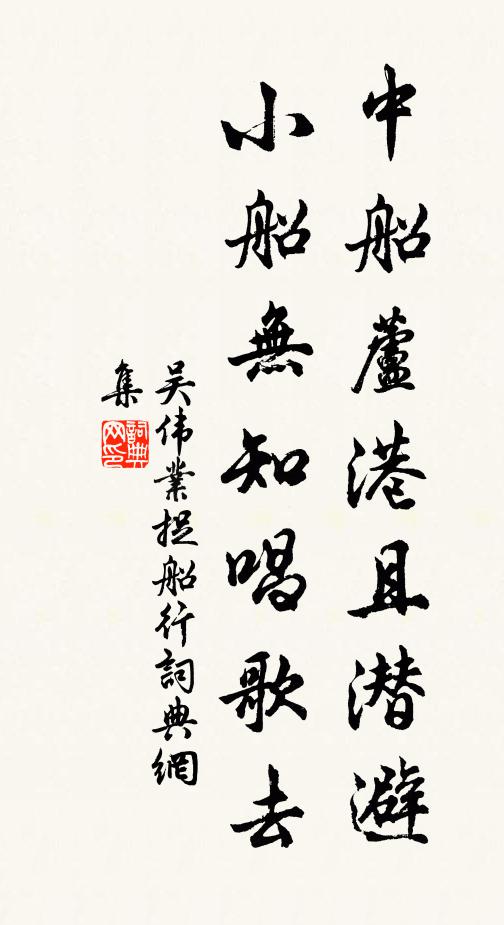 中船蘆港且潜避
小船無知唱歌去
吴伟業捉船行詞典網
集
詞典
网印